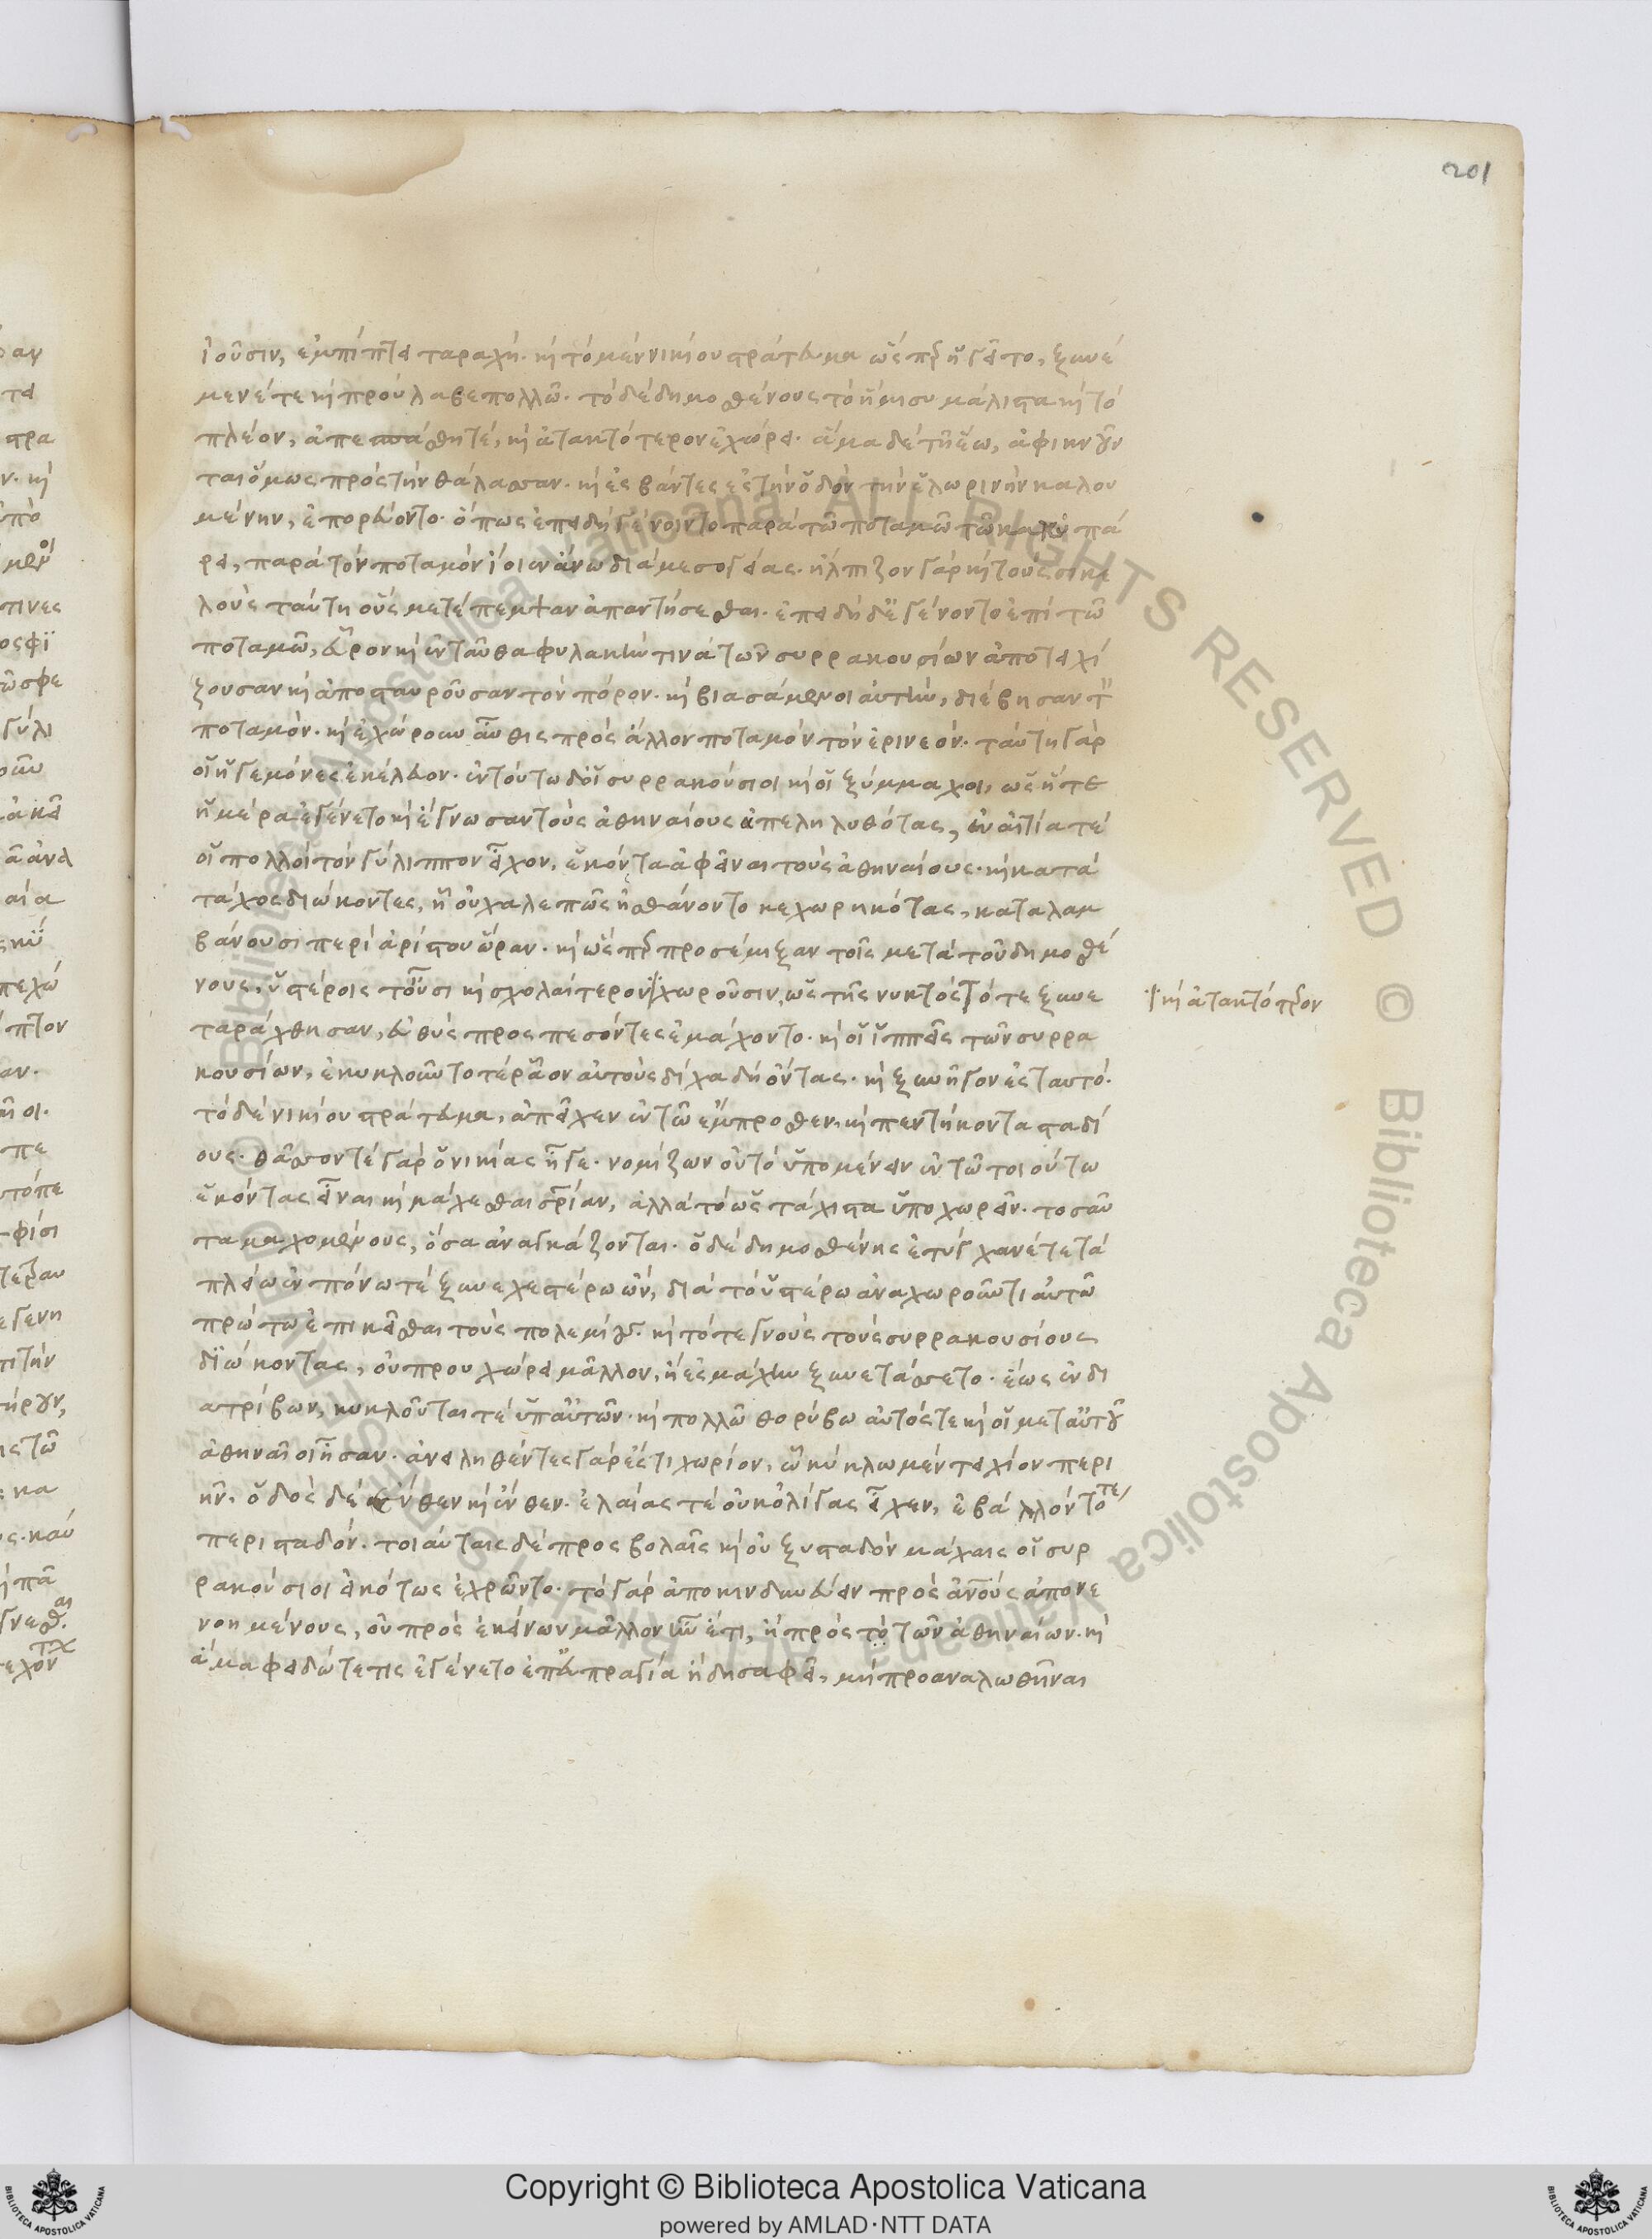 201
ἰοῦσιν, ἐμπίπτει ταραχή. καὶ τὸ μὲν νικίου στράτευμα ὥσπερ ἡγεῖτο, ξυνέ
μενέ τε καὶ προύλαβε πολλῶ. τὸ δὲ δημοσθένους τὸ ἥμισυ μάλιστα καὶ τὸ
πλέον, ἀπεσπάσθη τέ, καὶ ἀτακτότερον ἐχώρει. ἅμα δὲ τῆ ἕω, ἀφικνοῦν
ται ὅμως πρὸς τὴν θάλασσαν. καὶ ἐσβάντες ἐς τὴν ὁδὸν τὴν ἑλωρινὴν καλου
μένην, ἐπορεύοντο. ὅπως ἐπειδὴ γένοιντο παρὰ τῶ ποταμῶ τῶ κακυπά
ρει, παρὰ τὸν ποταμὸν ἴοιεν ἄνω διὰ μεσογείας. ἤλπιζον γὰρ καὶ τοὺς σικε
λοὺς ταύτη οὓς μετέπεμψαν ἀπαντήσεσθαι. ἐπειδὴ δ' ἐγένοντο ἐπὶ τῶ
ποταμῶ, εὗρον καὶ ἐνταῦθα φυλακήν τινα τῶν συρρακουσίων ἀποτειχί
ζουσαν καὶ ἀποσταυροῦσαν τὸν πόρον. καὶ βιασάμενοι αὐτήν, διέβησαν τὸν
ποταμόν. καὶ ἐχώρουν αὖθις πρὸς ἄλλον ποταμὸν τὸν ἐρινεόν. ταύτη γὰρ
οἱ ἡγεμόνες ἐκέλευον. ἐν τούτω δ' οἱ συρρακούσιοι καὶ οἱ ξύμμαχοι, ὡς ἥ τε
ἡμέρα ἐγένετο καὶ ἔγνωσαν τοὺς ἀθηναίους ἀπεληλυθότας, ἐν αἰτία τε
οἱ πολλοὶ τὸν γύλιππον εἶχον, ἑκόντα ἀφεῖναι τοὺς ἀθηναίους. καὶ κατὰ
τάχος διώκοντες, ἧ οὐ χαλεπῶς ἠσθάνοντο κεχωρηκότας, καταλαμ
βάνουσι περὶ ἀρίστου ὥραν. καὶ ὥσπερ προσέμιξαν τοῖς μετὰ τοῦ δημοσθέ
νους, ὑστέροις τ' οὖσι καὶ σχολαίτερον χωροῦσιν, ὡς τῆς νυκτὸς τότε ξυνε
καὶ ἀτακτότερον
ταράχθησαν, εὐθὺς προσπεσόντες ἐμάχοντο. καὶ οἱ ἱππεῖς τῶν συρρα
κουσίων, ἐκυκλοῦντό τε ῥᾶον αὐτοὺς δίχα δὴ ὄντας. καὶ ξυνῆγον ἐς ταυτό.
τὸ δὲ νικίου στράτευμα, ἀπεῖχεν ἐν τῶ ἔμπροσθεν, καὶ πεντήκοντα σταδί
ους. θᾶσσόν τε γὰρ ὁ νικίας ἦγε. νομίζων οὐ τὸ ὑπομένειν ἐν τῶ τοιούτω
ἑκόντας εἶναι καὶ μάχεσθαι σωτηρίαν, ἀλλὰ τὸ ὡς τάχιστα ὑποχωρεῖν. τοσαῦ
τα μαχομένους, ὅσα ἀναγκάζονται. ὁ δὲ δημοσθένης ἐτύγχανέ τε τὰ
πλείω ἐν πόνω τε ξυνεχεστέρω ὤν, διὰ τὸ ὑστέρω ἀναχωροῦντι αὐτῶ
πρώτω ἐπικεῖσθαι τοὺς πολεμίους. καὶ τότε γνοὺς τοὺς συρρακουσίους
διώκοντας, οὐ προυχώρει μᾶλλον, ἢ ἐς μάχην ξυνετάσσετο. ἕως ἐνδι
ατρίβων, κυκλοῦταί τε ὑπ' αὐτῶν. καὶ πολλῶ θορύβω αὐτός τε καὶ οἱ μετ' αὐτοῦ
ἀθηναῖοι ἦσαν. ἀνειληθέντες γὰρ ἔς τι χωρίον, ὧ κύκλω μὲν τειχίον περι
ῆν. ὁδὸς δὲ ἔνθεν καὶ ἔνθεν. ἐλαίας τὲ οὐκ ὀλίγας εἶχεν, ἐβάλλοντό τε
περισταδόν. τοιαύταις δὲ προσβολαῖς καὶ οὐ ξυσταδὸν μάχαις οἱ συρ
ρακούσιοι εἰκότως ἐχρῶντο. τὸ γὰρ ἀποκινδυνεύειν πρὸς ἀνους ἀπονε
νοημένους, οὐ πρὸς ἐκείνων μᾶλλον ἦν ἔτι, ἢ πρὸς τῶν ἀθηναίων. καὶ
ἅμα φειδώ τέ τις ἐγένετο ἐπ' εὐπραγία ἤδη σαφεῖ, μὴ προαναλωθῆναι
Copyright © Biblioteca Apostolica Vaticana
powered by AMLAD·NTT DATA